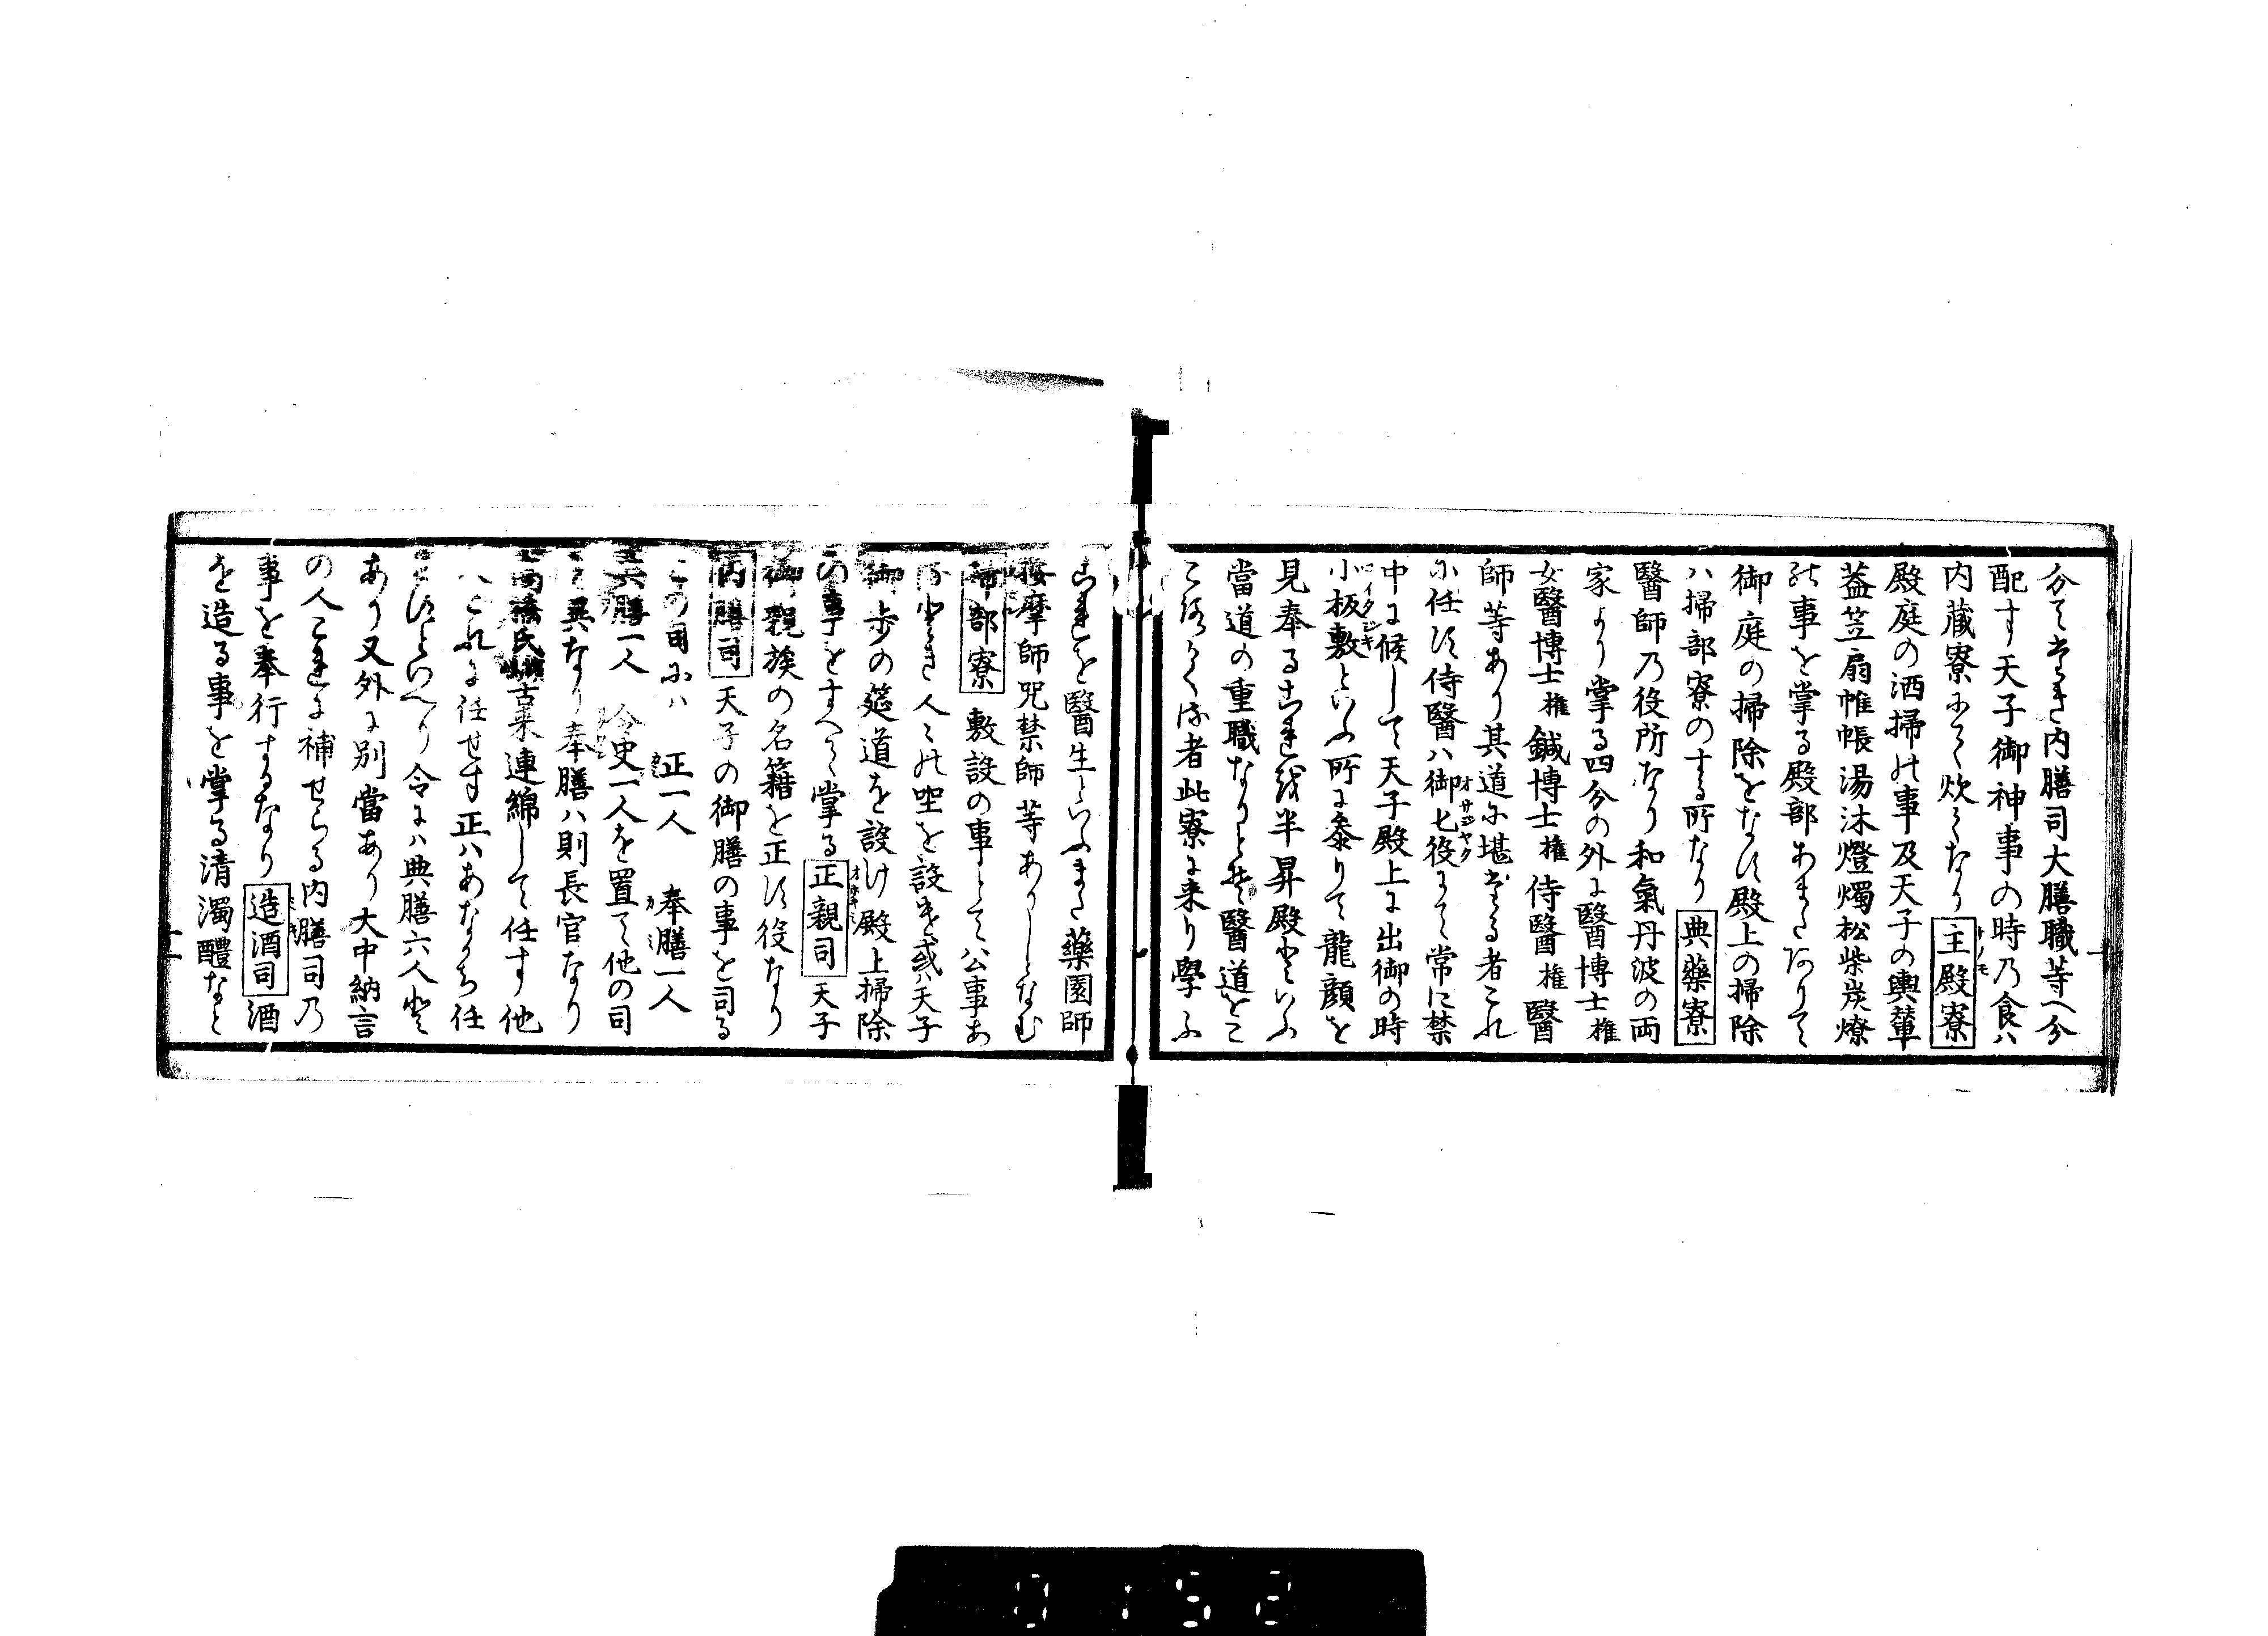 分て其まゝ内膳司大膳職等へ分
配す天子御神事の時乃食ハ
内蔵寮にて炊くなり主殿寮
殿庭の洒掃の事及天子の輿輦
蓋笠扇帷帳湯沐燈燭松柴炭燎
の事を掌る殿部あまたありて
御庭の掃除をなす殿上の掃除
ハ掃部寮のする所なり典薬寮
醫師乃役所なり和氣丹波の両
家より掌る四分の外に醫博士権
女醫博士権鍼博士権侍醫権醫
師等あり其道に堪たる者これ
に任す侍醫ハ御匕役にて常に禁
中に候して天子殿上に出御の時
小板敷といふ所に参りて龍顔を
見奉るこれを半昇殿といふ
當道の重職なりとそ醫道をこ
者此寮に来り學ふ
これを醫生といふまた藥園師
按摩師咒禁師等ありしとなむ
掃部寮敷設の事とて公事あ
人々の坐を設け或ハ天子
御歩の筵道を設け殿上掃除
の事をすへて掌る正親司天子
御親族の名籍を正す役なり
内膳司天子の御膳の事を司る
この司にハ正一人奉膳一人
典膳一人令史一人を置て他の司
と異なり奉膳ハ則長官なり
高橋氏古来連綿して任す他
ハこれに任せす正ハあなかち任
せすといへり令にハ典膳六人と
あり又外に別當あり大中納言
の人これに補せらる内膳司乃
事を奉行するなり造酒司酒
を造る事を掌る清濁醴なと